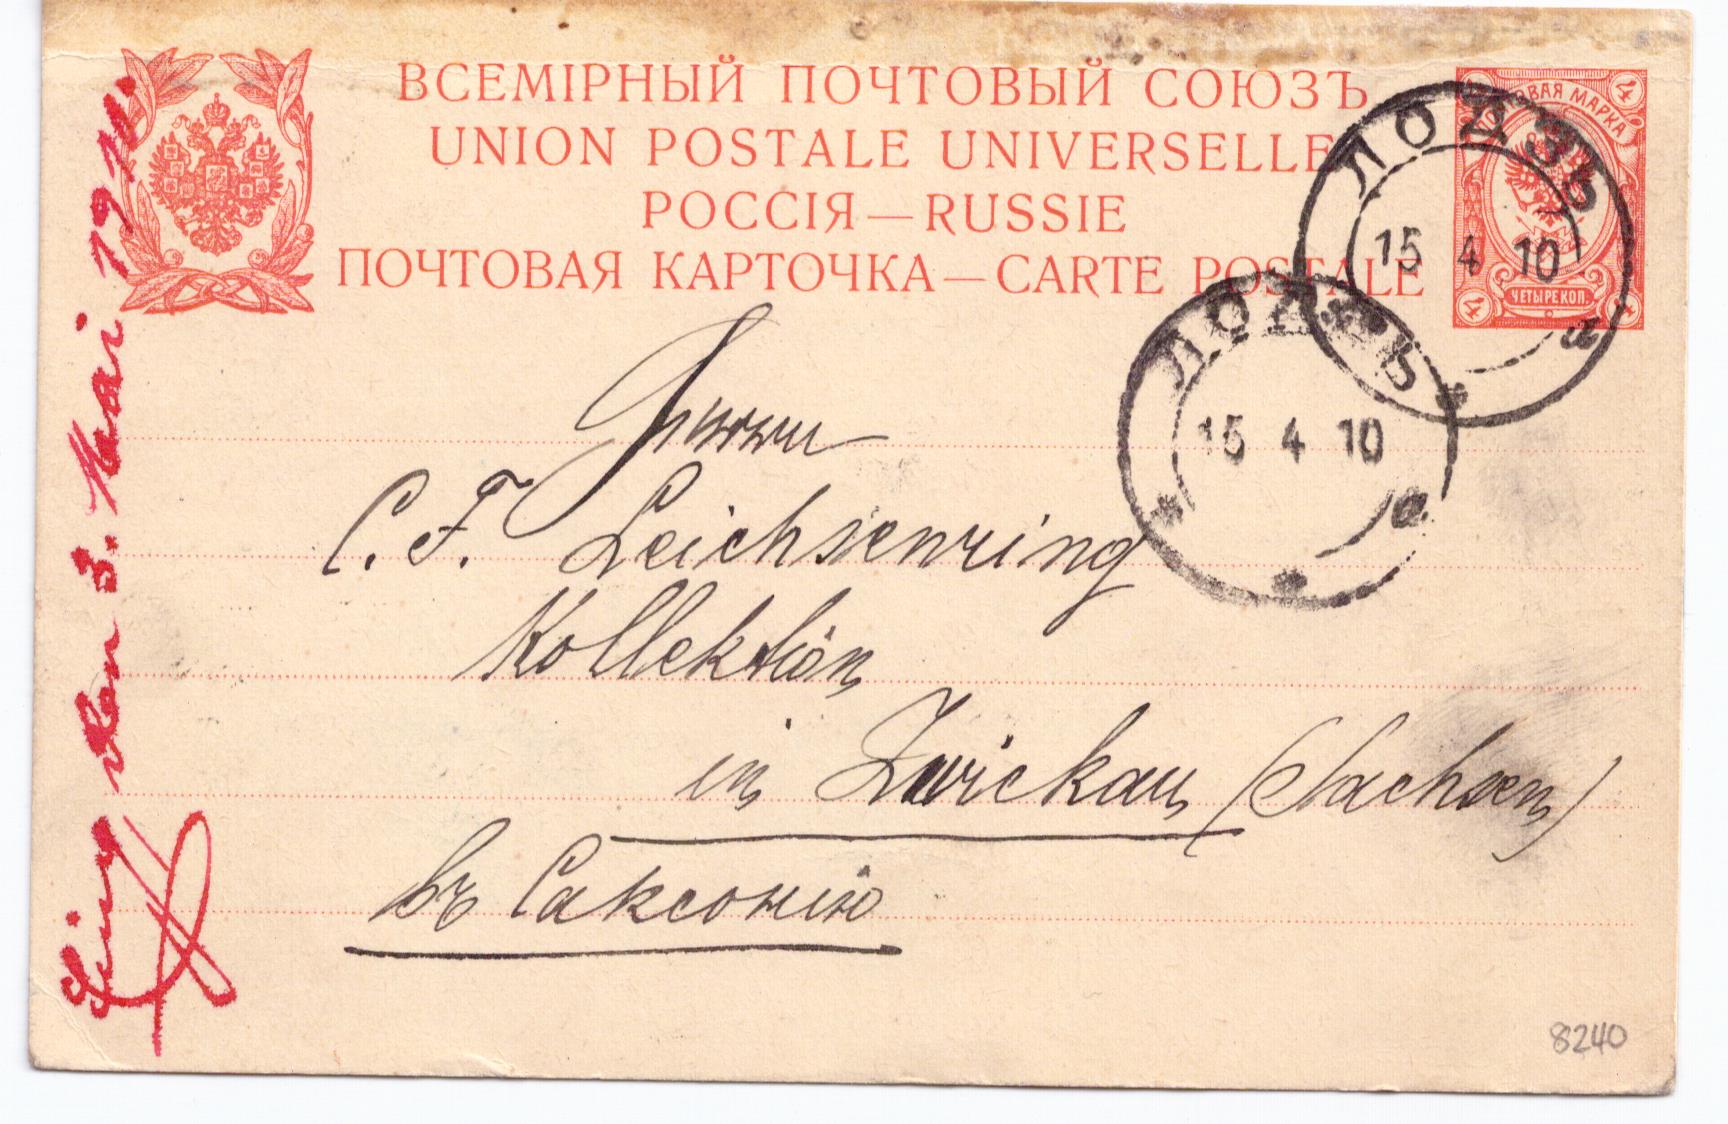 ВСЕМІРНЫЙ ПОЧТОВЫЙ СОЮЗЪ
UNION POSTALE UNIVERSELLE
РОССІЯ — RUSSIE
ПОЧТОВАЯ КАРТОЧКА — CARTE POSTALE
4
ПОЧТОВАЯ МАРКА
4
4
ЧЕТЫРЕ КОП.
4
ЛОДЗЬ
15 4 10
а
ЛОДЗЬ
15 4 10
а
Herrn
C. F. Leichsenring
Kollektion
in Zwickau (Sachsen)
въ Саксонію
den 3. Mai 1910.
8240